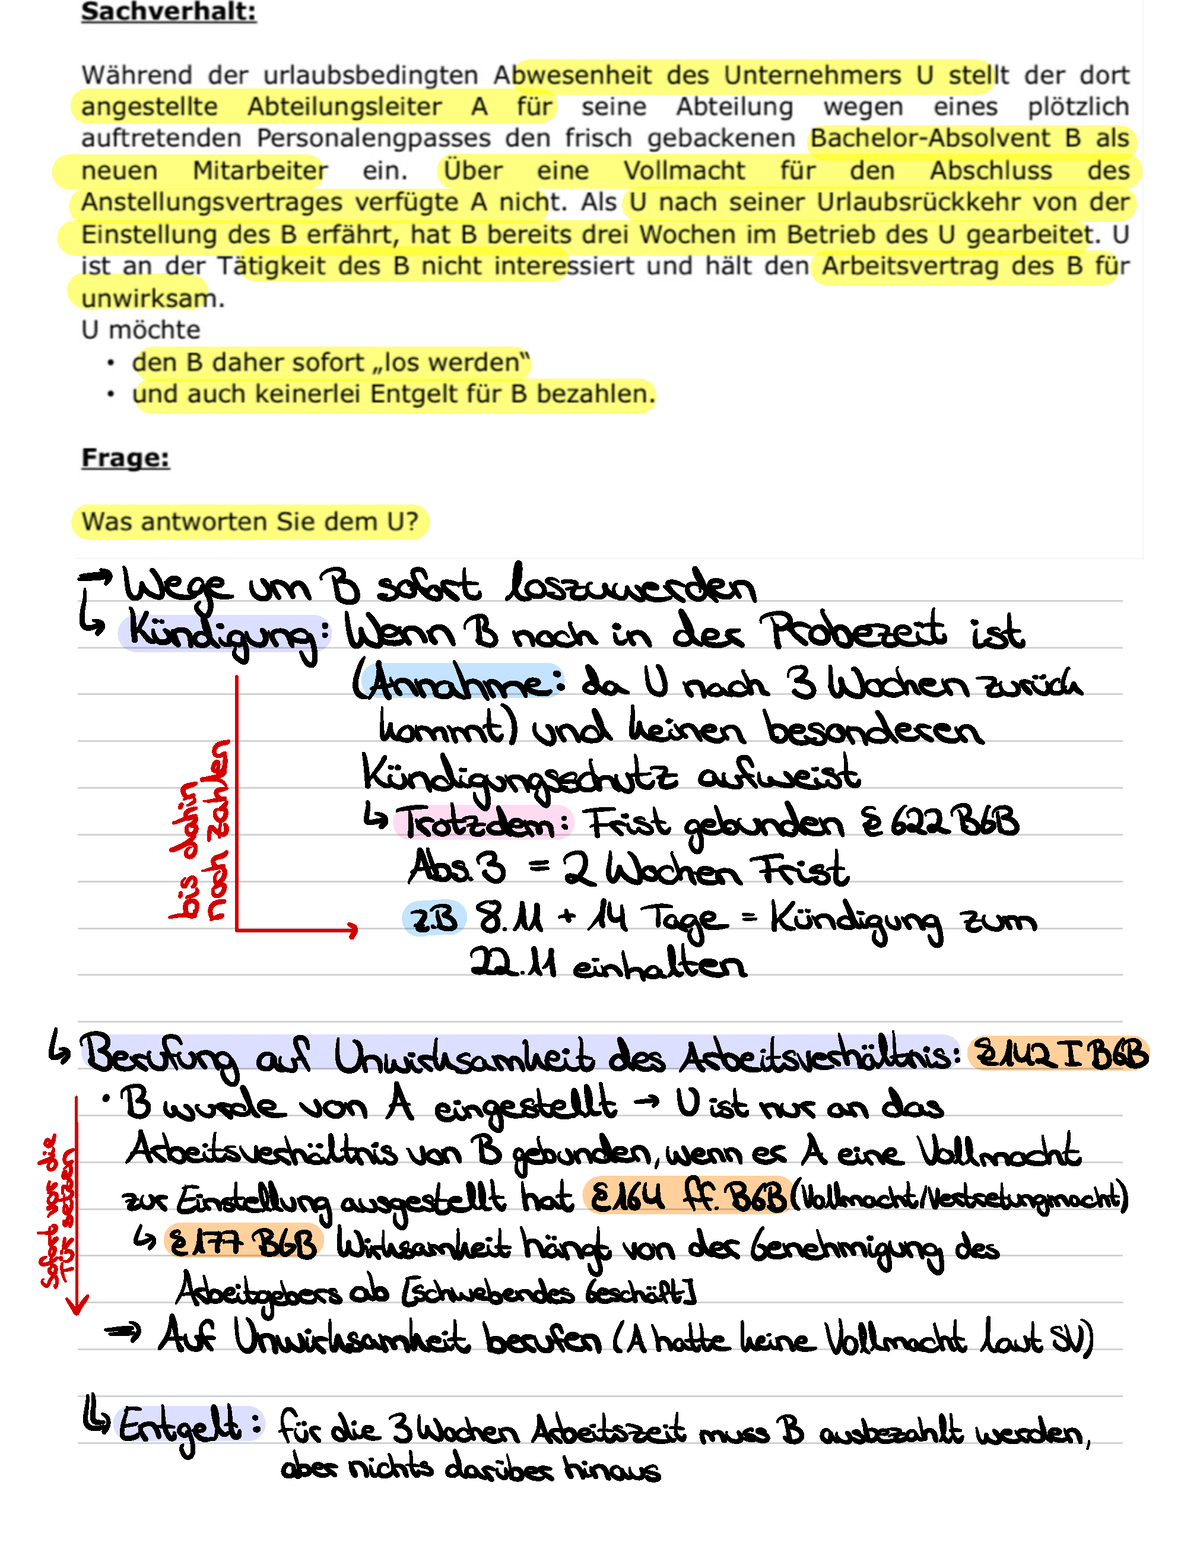 Sachverhalt:
Während der urlaubsbedingten Abwesenheit des Unternehmers U stellt der dort
angestellte Abteilungsleiter A für seine Abteilung wegen eines plötzlich
auftretenden Personalengpasses den frisch gebackenen Bachelor-Absolvent B als
neuen Mitarbeiter ein. Über eine Vollmacht für den Abschluss des
Anstellungsvertrages verfügte A nicht. Als U nach seiner Urlaubsrückkehr von der
Einstellung des B erfährt, hat B bereits drei Wochen im Betrieb des U gearbeitet. U
ist an der Tätigkeit des B nicht interessiert und hält den Arbeitsvertrag des B für
unwirksam.
U möchte
• den B daher sofort „los werden“
• und auch keinerlei Entgelt für B bezahlen.
Frage:
Was antworten Sie dem U?
→ Wege um B sofort loszuwerden
↳ Kündigung: Wenn B noch in der Probezeit ist
(Annahme: da U nach 3 Wochen zurück
kommt) und keinen besonderen
Kündigungsschutz aufweist
↳ Trotzdem: Frist gebunden § 622 BGB
Abs. 3 = 2 Wochen Frist
z.B 8.11 + 14 Tage = Kündigung zum
22.11 einhalten
bis dahin
noch zahlen
↳ Berufung auf Unwirksamkeit des Arbeitsverhältnis: § 142 I BGB
• B wurde von A eingestellt → U ist nur an das
Arbeitsverhältnis von B gebunden, wenn er A eine Vollmacht
zur Einstellung ausgestellt hat § 164 ff. BGB (Vollmacht/Vertretungmacht)
↳ § 177 BGB Wirksamkeit hängt von der Genehmigung des
Arbeitgebers ab [schwebendes Geschäft]
⇒ Auf Unwirksamkeit berufen (A hatte keine Vollmacht laut SV)
Sofort vor die
Tür setzen
↳ Entgelt: für die 3 Wochen Arbeitszeit muss B ausbezahlt werden,
aber nichts darüber hinaus